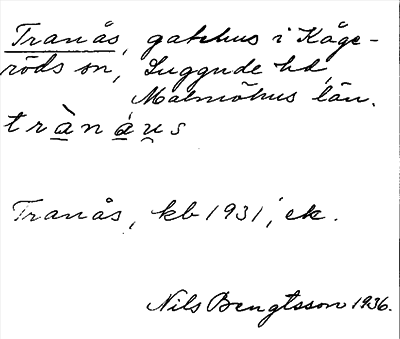 Tranås, gatehus i Kåge-
röds sn, Luggude hd,
Malmöhus län.
trànáu̯s
Tranås, kb 1931, ek.
Nils Bengtsson 1936.